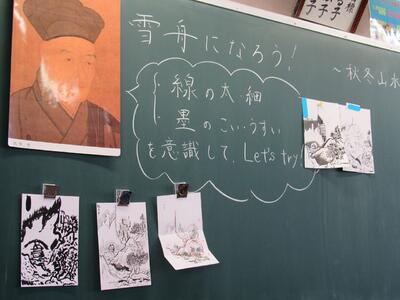 雪舟になろう!
～秋冬山水
線の太・細
墨のこい・うすい
を意識して、Let's try!